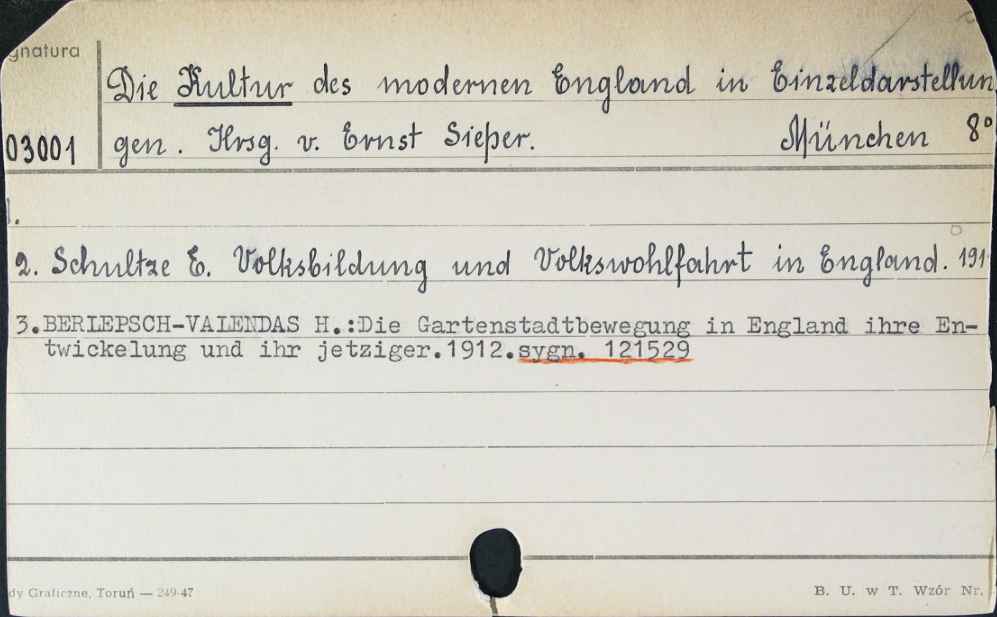 gnatura
Die Kultur des modernen England in Einzeldarstellun
03001 gen. Hrsg. v. Ernst Sieper. München 8°
1.
2. Schultze E. Volksbildung und Volkswohlfahrt in England. 191
3.BERLEPSCH-VALENDAS H.:Die Gartenstadtbewegung in England ihre En-
twickelung und ihr jetziger.1912.sygn. 121529
dy Graficzne, Toruń — 249-47 B. U. w T. Wzór Nr.